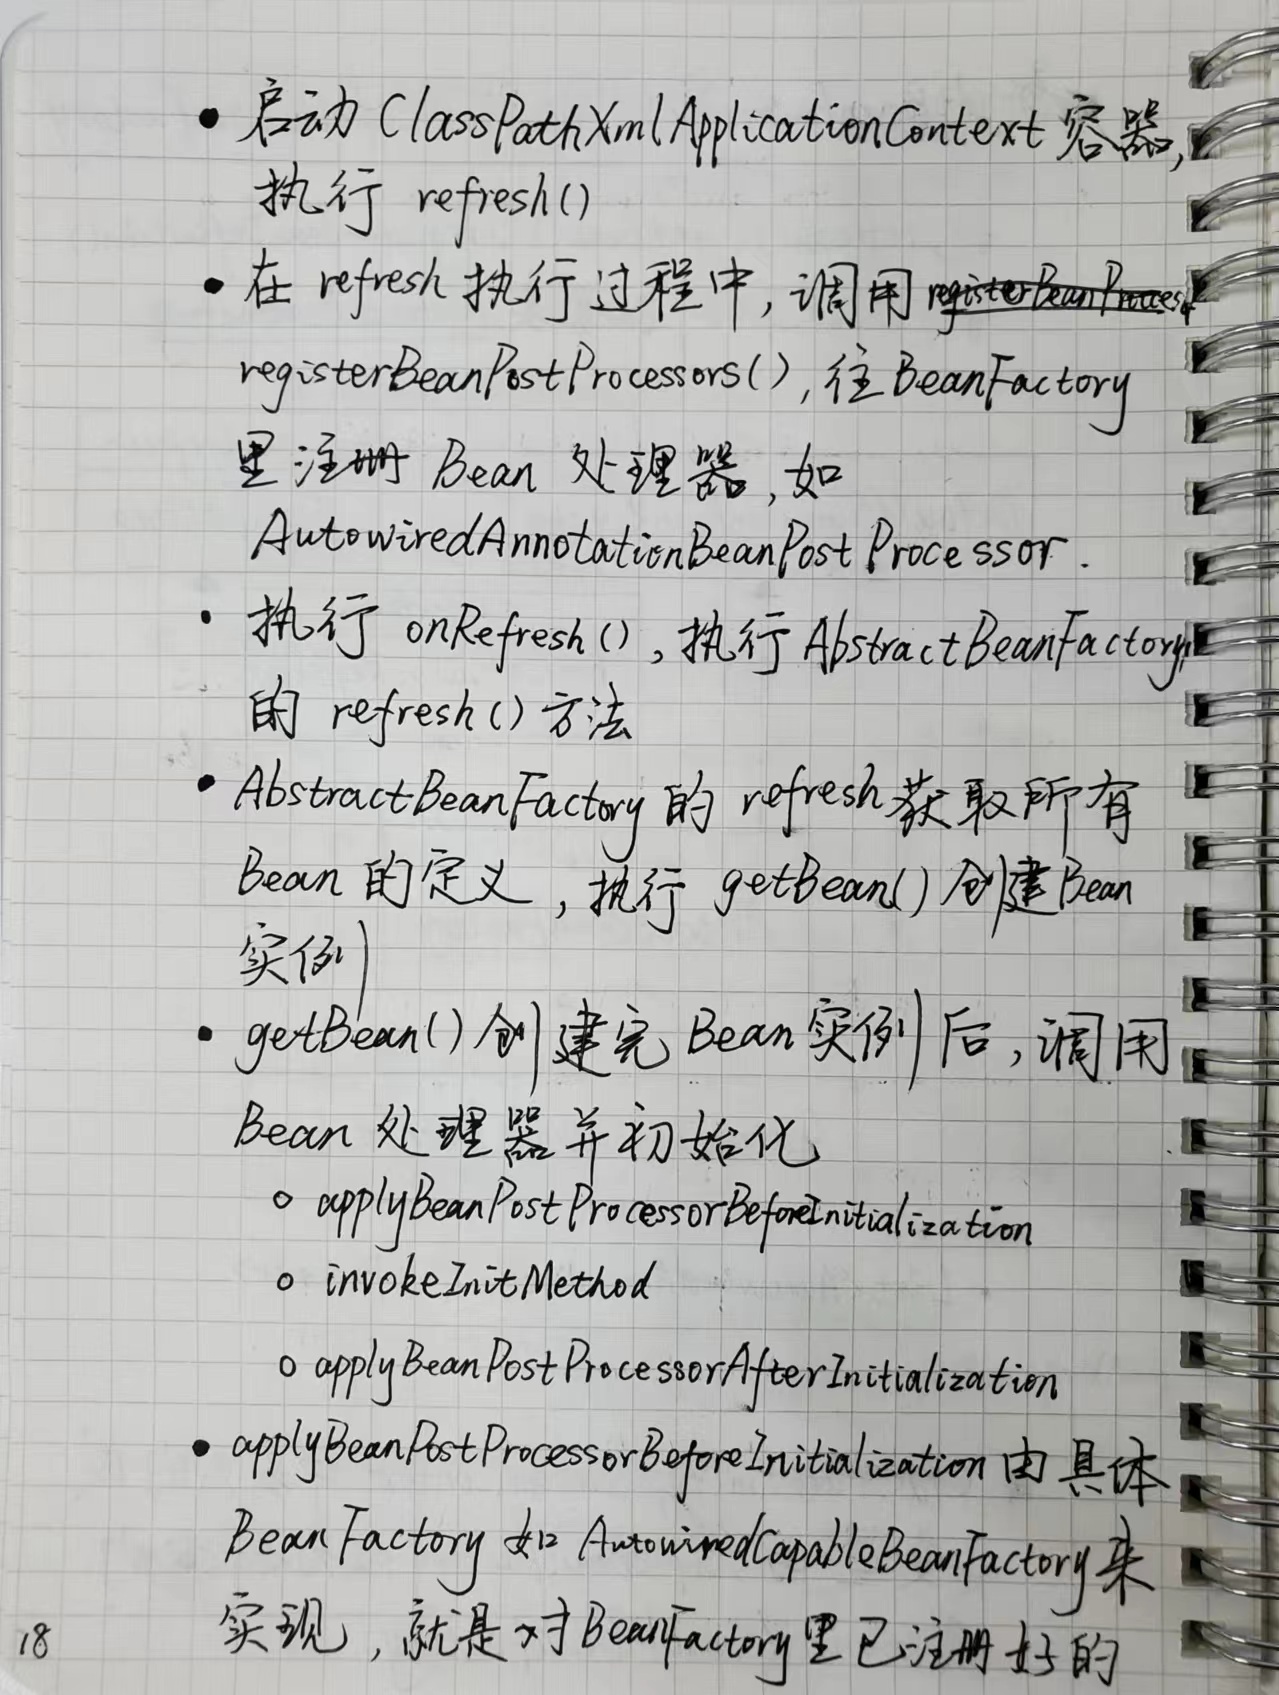 • 启动 ClassPathXmlApplicationContext 容器,
执行 refresh()
• 在 refresh 执行过程中, 调用 registerBeanProcess
registerBeanPostProcessors(), 往 BeanFactory
里注册 Bean 处理器, 如
AutowiredAnnotationBeanPostProcessor.
• 执行 onRefresh(), 执行 AbstractBeanFactory
的 refresh() 方法
• AbstractBeanFactory 的 refresh 获取所有
Bean 的定义, 执行 getBean() 创建 Bean
实例
• getBean() 创建完 Bean 实例后, 调用
Bean 处理器并初始化
○ applyBeanPostProcessorBeforeInitialization
○ invokeInitMethod
○ applyBeanPostProcessorAfterInitialization
• applyBeanPostProcessorBeforeInitialization 由具体
BeanFactory 如 AutowiredCapableBeanFactory 来
实现, 就是对 BeanFactory 里已注册好的
18